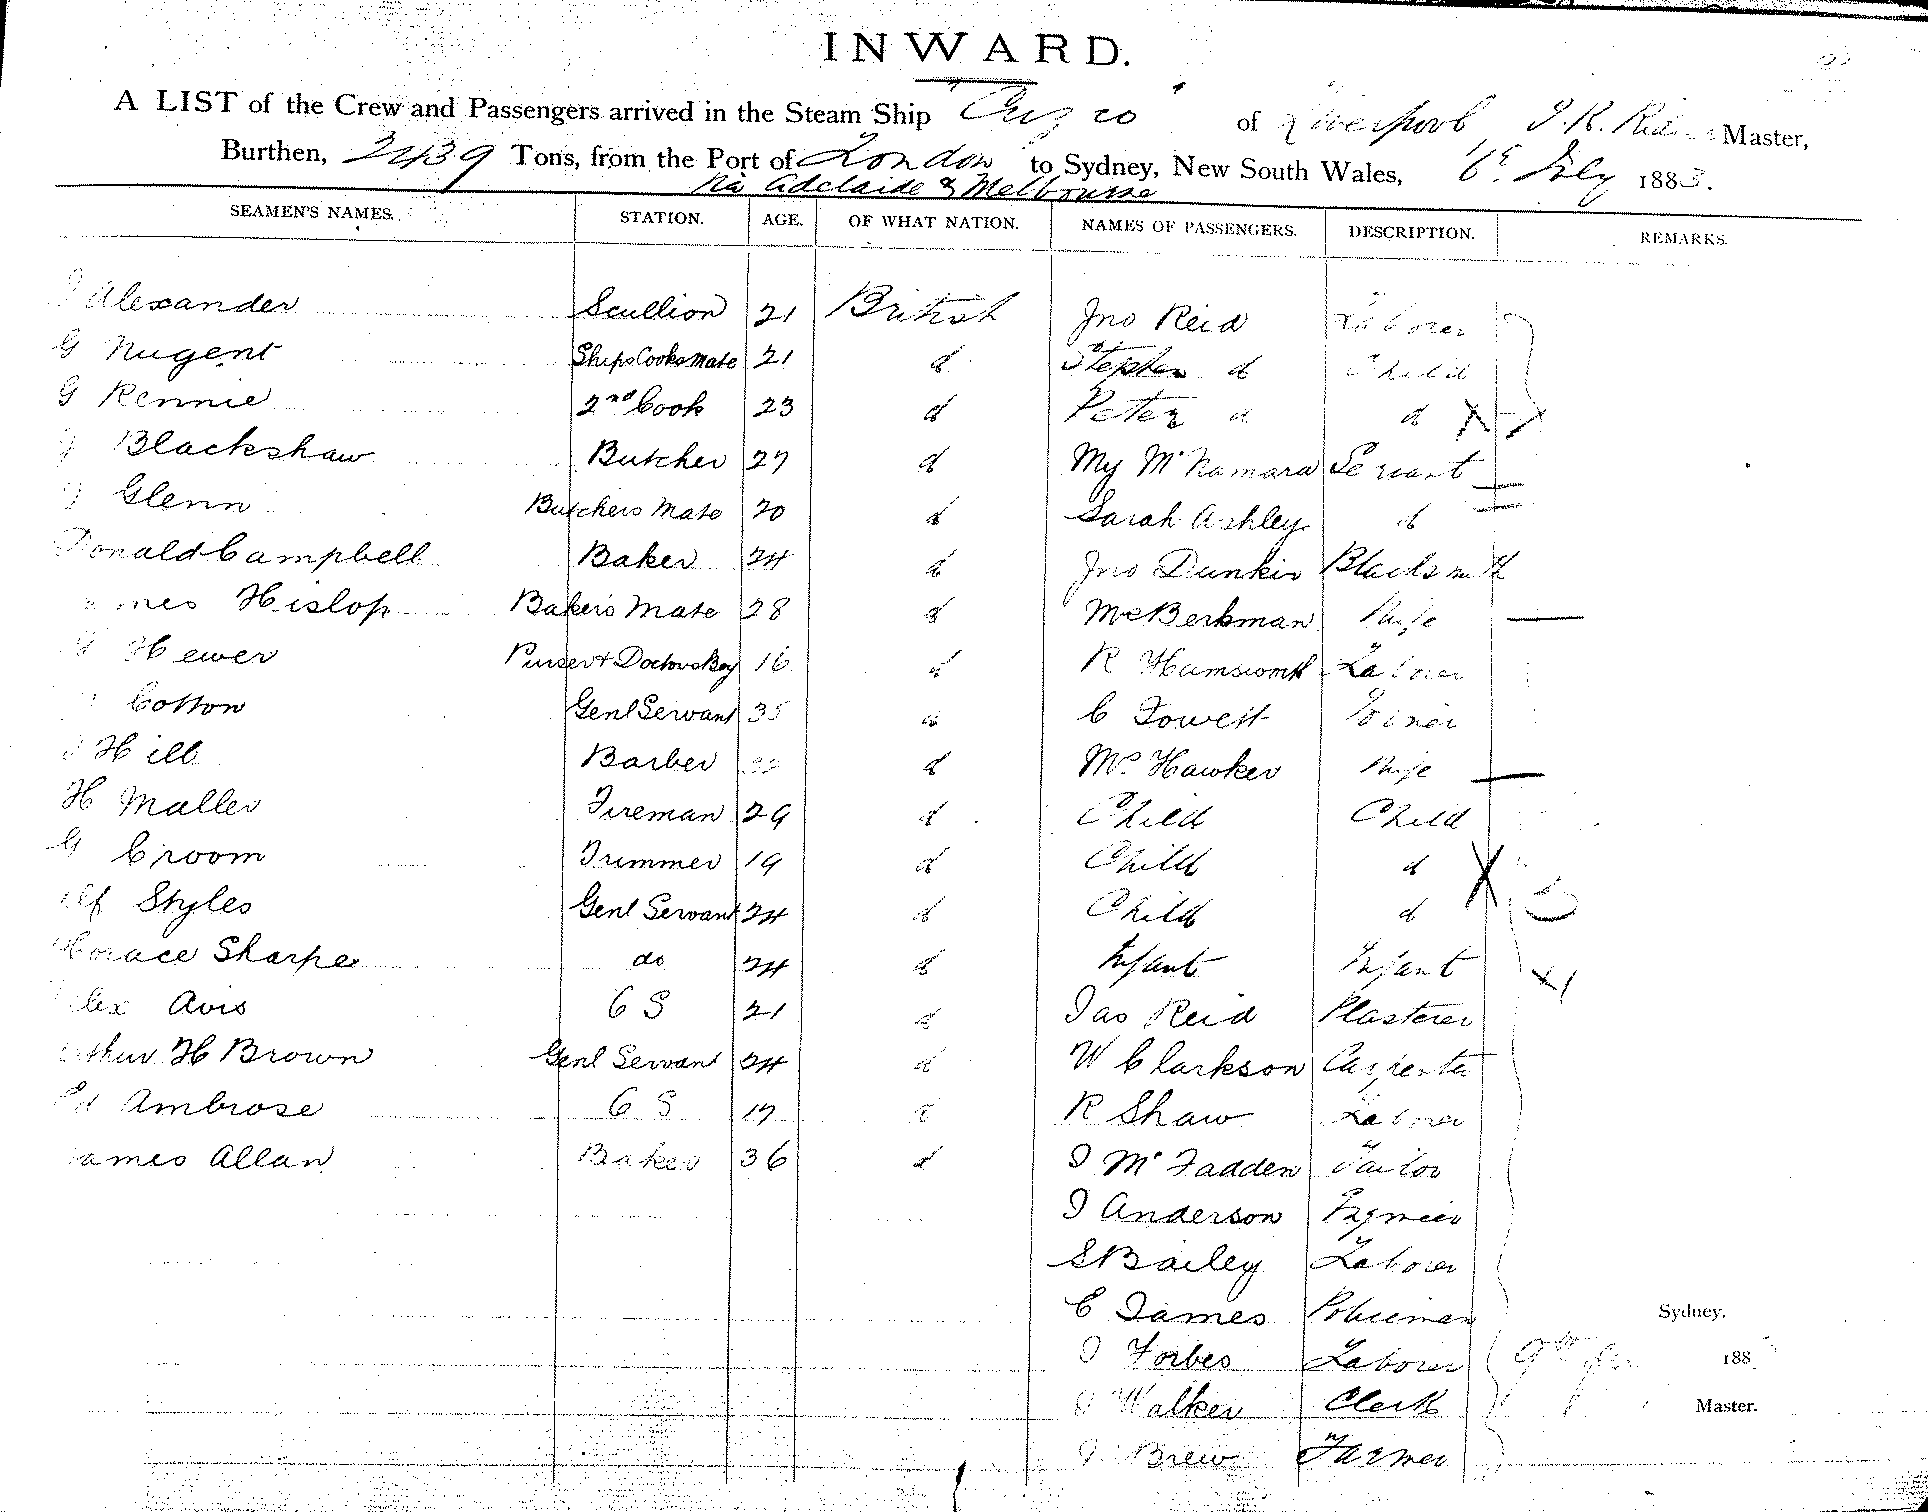 INWARD.
A LIST of the Crew and Passengers arrived in the Steam Ship "Cuzco" of Liverpool J. K. Master,
Burthen, 2439 Tons, from the Port of London to Sydney, New South Wales, 6th July 1883.
Via Adelaide & Melbourne
SEAMEN'S NAMES. STATION. AGE. OF WHAT NATION. NAMES OF PASSENGERS. DESCRIPTION. REMARKS.
Alexander Scullion 21 British Jno Reid Laborer
G Nugent Ships Cooks Mate 21 d Stephen d Child
G Rennie 2nd Cook 23 d Peter d d X
Blackshaw Butcher 27 d My McNamara Servant
Glenn Butchers Mate 20 d Sarah Ashley d
Donald Campbell Baker 24 d Jno Dunkin Blacksmith
Hislop Bakers Mate 28 d Berkman Wife
Hewer Purser & Doctors Boy 16 d R Hamsworth Laborer
Cotton Genl Servant 35 d C Towett Joiner
Hill Barber d Mrs Hawker Wife
H Maller Fireman 29 d Child Child
G Croom Trimmer 19 d Child d X
Alf Styles Genl Servant 24 d Child d
Horace Sharpe do 24 d Infant Infant
Alex Avis G S 21 d Jas Reid Plasterer
Arthur H Brown Genl Servant 24 d W Clarkson Carpenter
Ed Ambrose G S 17 d R Shaw Laborer
James Allan Baker 36 d J McFadden Tailor
J Anderson Engineer
S Bailey Laborer
C James Policeman
Sydney.
J Forbes Laborer 9th 188
J Walker Clerk Master.
J Brew Farmer